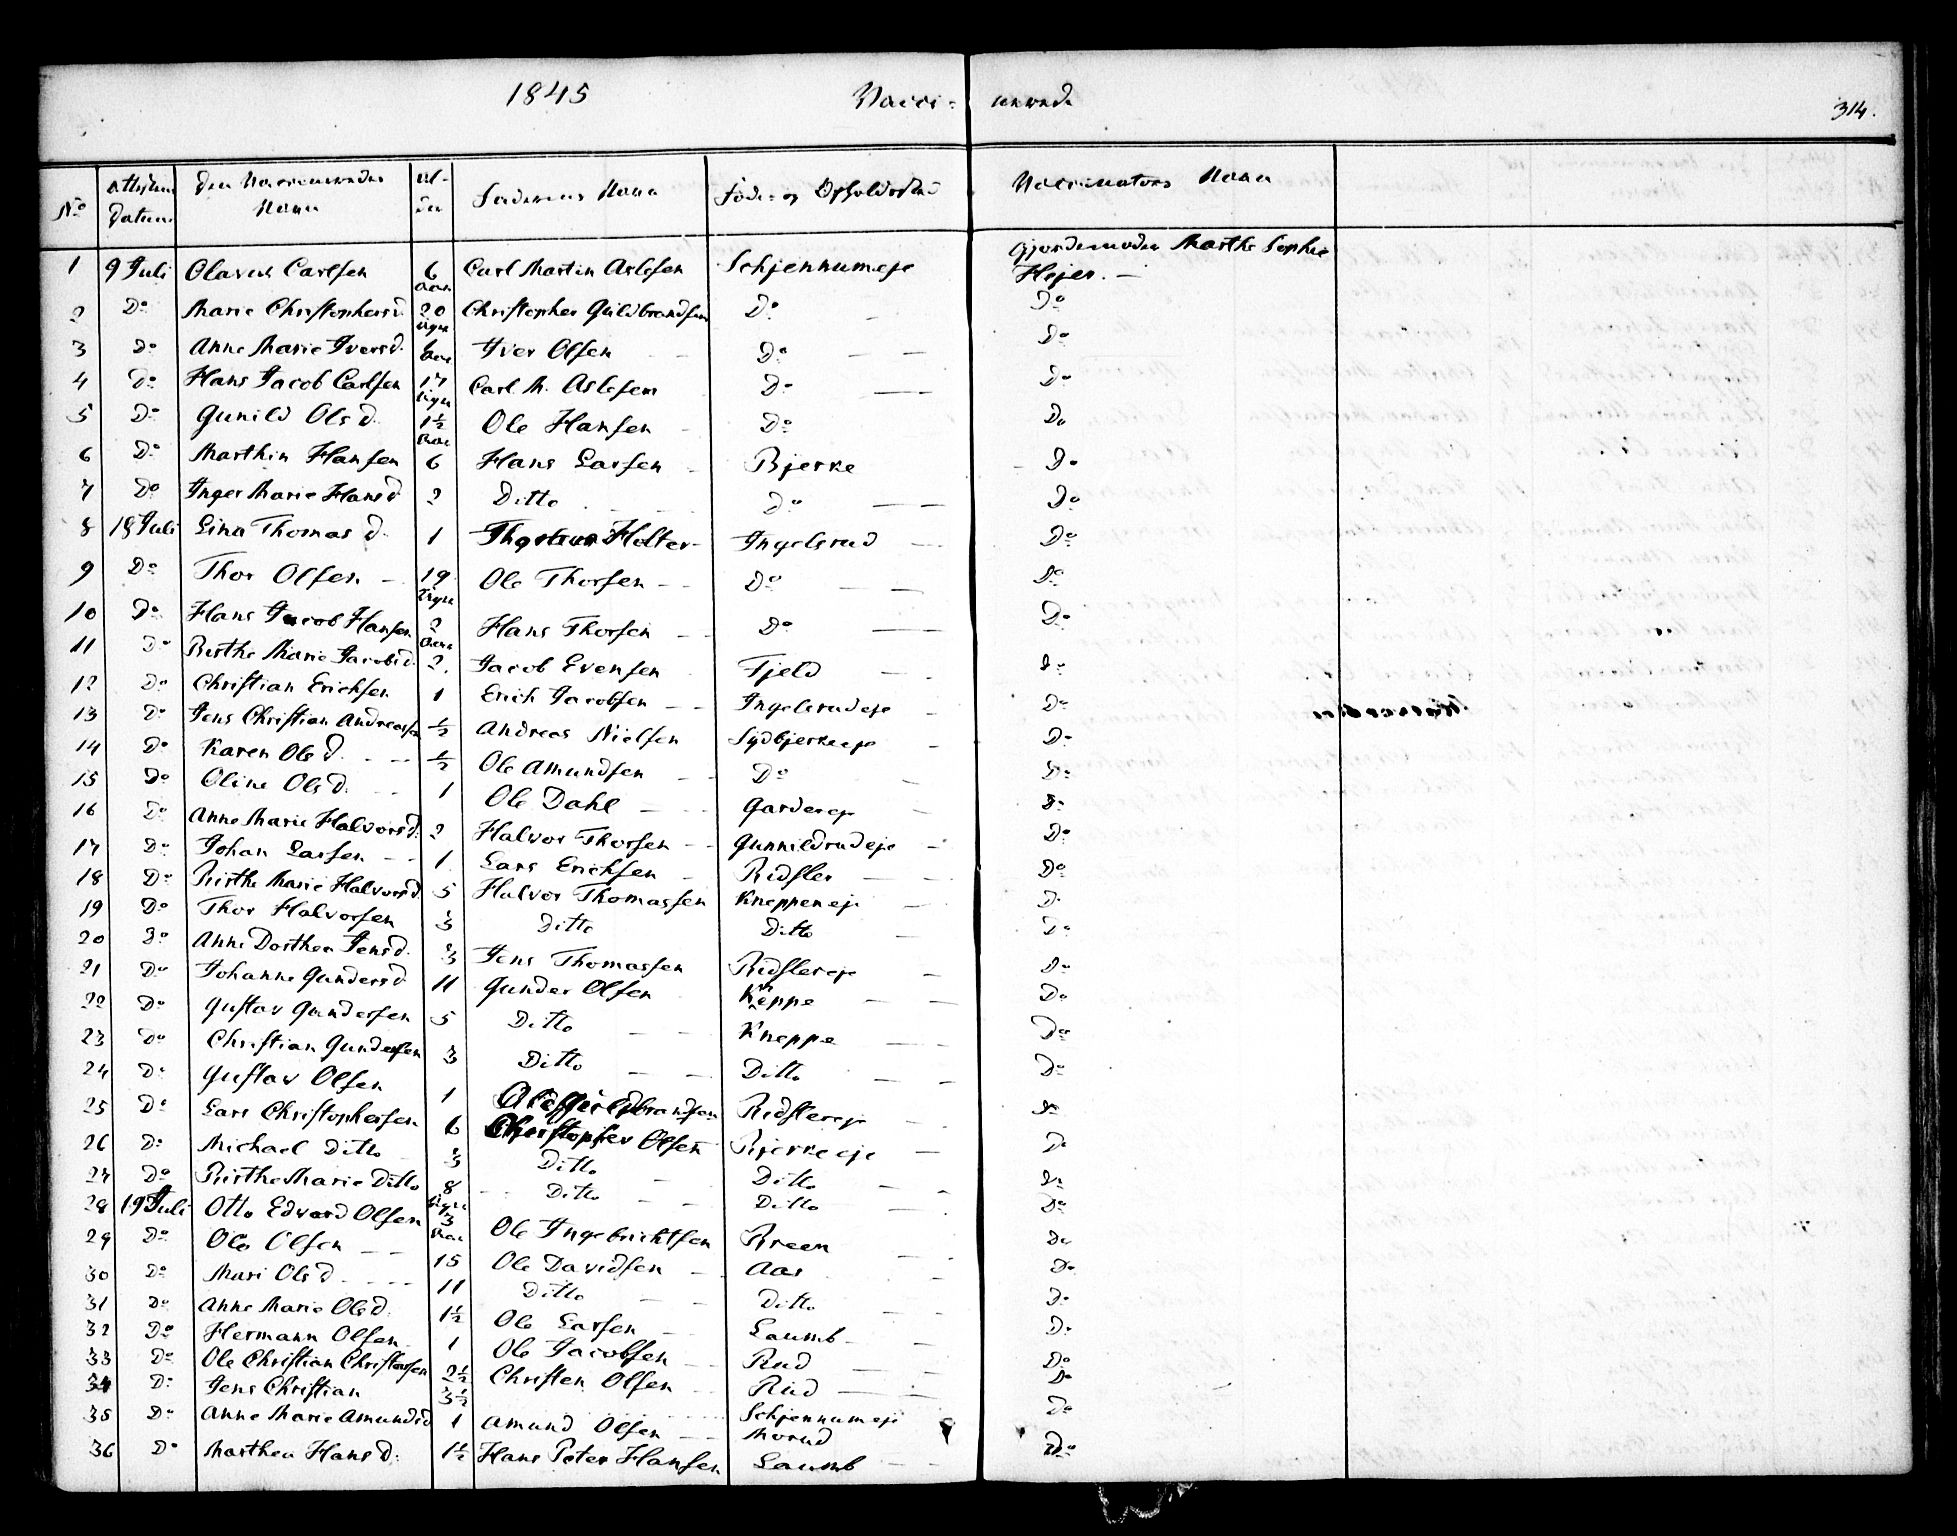 1845 Vacci- nerede 314.
No Attestens Datum Den Vaccineredes Navn Al- der Faderens Navn Føde- og Opholdssted Vaccinators Navn
1 9 Juli Olavus Carlsen 6 Aar Carl Martin Aslesen Schjennumeje Gjordemoder Marthe Sophie Hejer. —
2 Do Marie Christophersd. 20 Uger Christopher Guldbrandsen Do Do
3 Do Anne Marie Iversd. 6 Aar Iver Olsen Do Do
4 Do Hans Jacob Carlsen 17 Uger Carl M. Aslesen Do Do
5 Do Gunild Olsd. 1½ Aar Ole Hansen Do Do
6 Do Marthin Hansen 6 Hans Larsen Bjerke Do
7 Do Inger Marie Hansd 2 Ditto Do Do
8 18 Juli Lina Thomasd. 1 Holter Ingelsrud Do
9 Do Thor Olsen 19 Uger Ole Thorsen Do Do
10 Do Hans Jacob Hansen 2 Aar Hans Thorsen Do Do
11 Do Birthe Marie Jacobsd. 2. Jacob Evensen Fjeld Do
12 Do Christian Erichsen 1 Erich Jacobsen Ingelsrudeje Do
13 Do Jens Christian Andreassen ½ Andreas Nielsen Sydbjerkeeje Do
14 Do Karen Olsd. ½ Ole Amundsen Do Do
15 Do Oline Olsd. 1 Ole Dahl Gardereje Do
16 Do Anne Marie Halvorsd. 2 Halvor Thorsen Gunnildrudeje Do
17 Do Johan Larsen 1 Lars Erichsen Ridsler Do
18 Do Birthe Marie Halvorsd. 5 Halvor Thomassen Kneppeneje Do
19 Do Thor Halvorsen 3 Ditto Ditto Do
20 Do Anne Dorthea Jensd. 3 Jens Thomassen Ridslereje Do
21 Do Johanne Gundersd 11 Gunder Olsen Kneppe Do
22 Do Gustav Gundersen 5 Ditto Kneppe Do
23 Do Christian Gundersen 3 Ditto Ditto Do
24 Do Gustav Olsen 1 Ridslereje Do
25 Do Lars Christophersen 6 Christopher Olsen Bjerkeeje Do
26 Do Michael Ditto 3 Ditto Ditto Do
27 Do Birthe Marie Ditto 8 Uger Ditto Ditto Do
28 19 Juli Otto Edvard Olsen 3 Aar Ole Ingebrichtsen Breen Do
29 Do Ole Olsen 15 Ole Davidsen Aas Do
30 Do Mari Olsd. 11 Ditto Ditto Do
31 Do Anne Marie Olsd. 1½ Ole Larsen Laumb Do
32 Do Hermann Olsen 1 Ole Jacobsen Rud Do
33 Do Ole Christian Christensen 2½ Christen Olsen Rud Do
34 Do Jens Christian 3½ Schjennumeje Do
35 Do Anne Marie Amundsd 1 Amund Olsen Morud Do
36 Do Marthea Hansd. 1½ Hans Peter Hansen Laumb Do